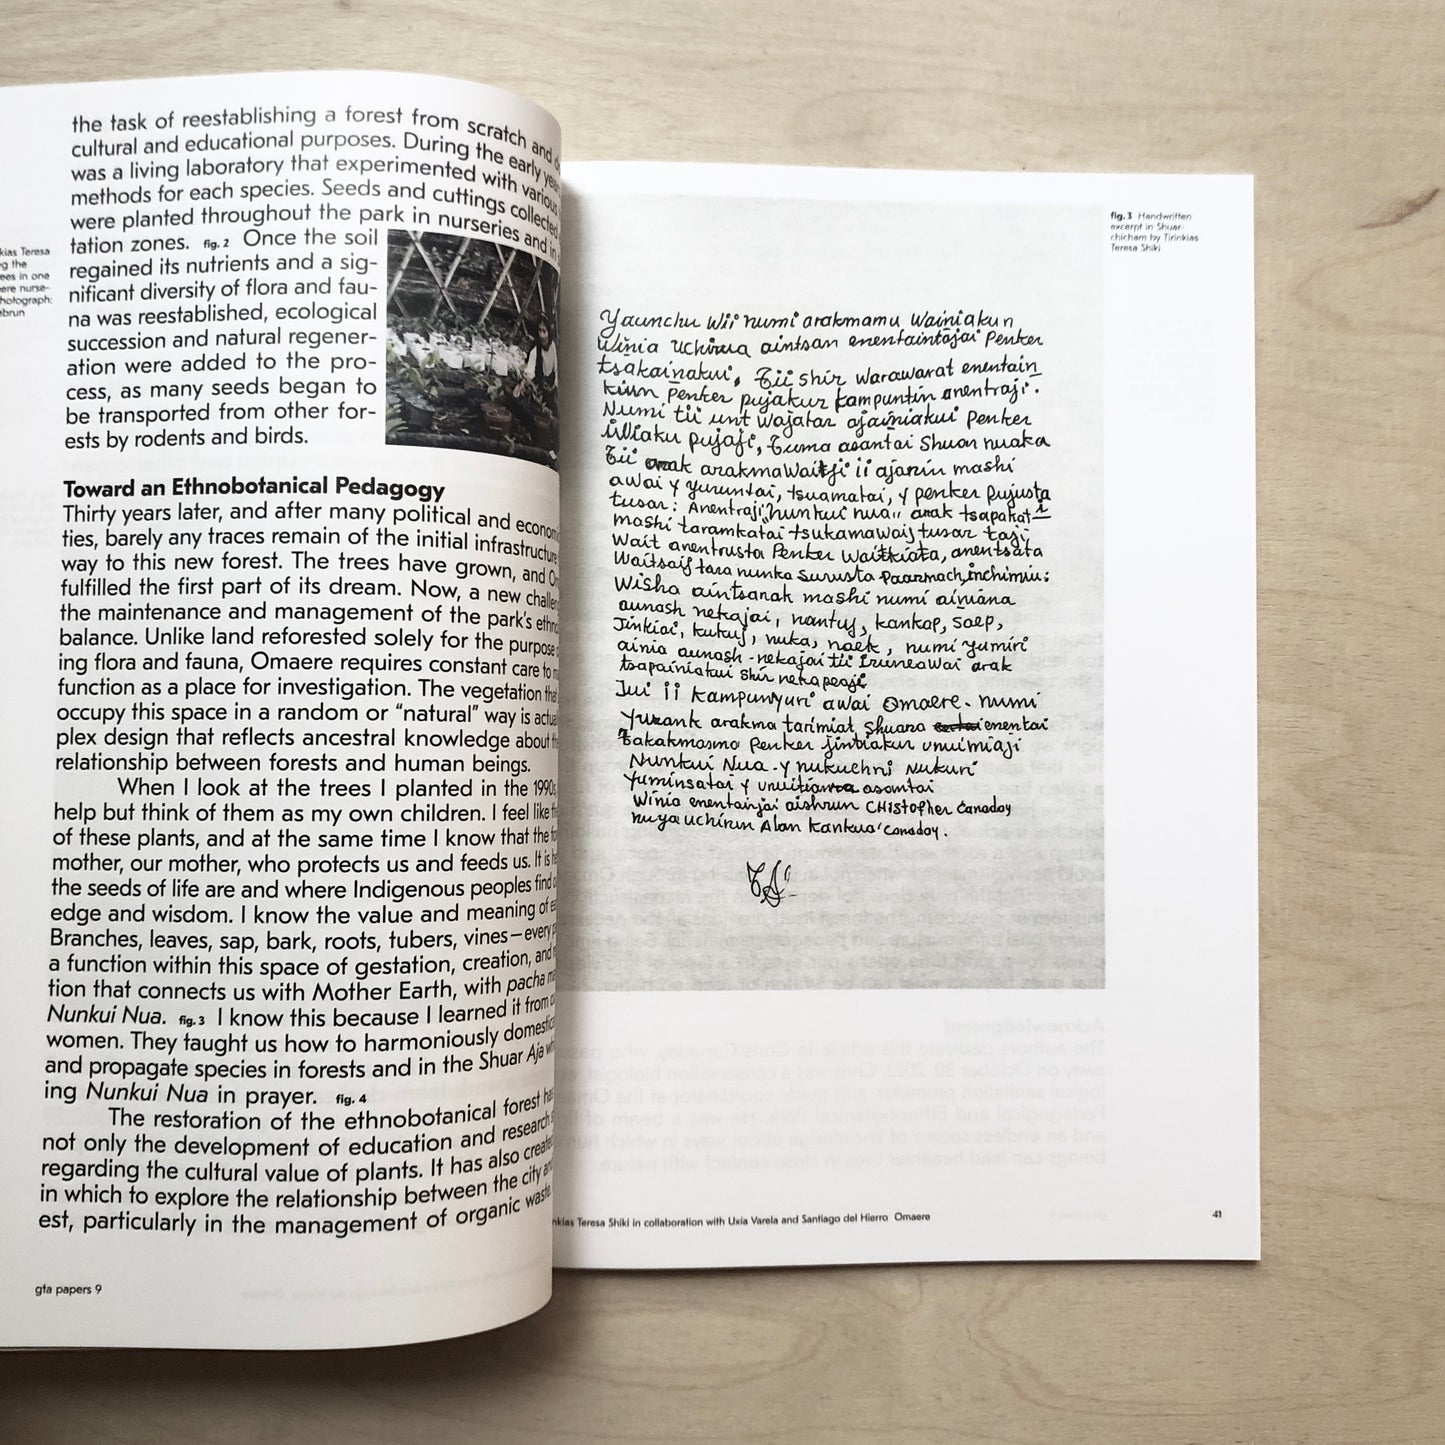 the task of reestablishing a forest from scratch and
cultural and educational purposes. During the early
was a living laboratory that experimented with various
methods for each species. Seeds and cuttings collected
were planted throughout the park in nurseries and in
tation zones. fig. 2 Once the soil
regained its nutrients and a sig-
nificant diversity of flora and fau-
na was reestablished, ecological
succession and natural regener-
ation were added to the pro-
cess, as many seeds began to
be transported from other for-
ests by rodents and birds.
Teresa
the
ees in one
ere nurse-
hotograph:
brun
Toward an Ethnobotanical Pedagogy
Thirty years later, and after many political and econom
ties, barely any traces remain of the initial infrastructure
way to this new forest. The trees have grown, and
fulfilled the first part of its dream. Now, a new challen
the maintenance and management of the park's ethno
balance. Unlike land reforested solely for the purpose
ing flora and fauna, Omaere requires constant care to
function as a place for investigation. The vegetation
occupy this space in a random or “natural” way is actua
plex design that reflects ancestral knowledge about
relationship between forests and human beings.
When I look at the trees I planted in the 1990s,
help but think of them as my own children. I feel like
of these plants, and at the same time I know that the
mother, our mother, who protects us and feeds us. It is
the seeds of life are and where Indigenous peoples find
edge and wisdom. I know the value and meaning of
Branches, leaves, sap, bark, roots, tubers, vines—every
a function within this space of gestation, creation, and
tion that connects us with Mother Earth, with pacha
Nunkui Nua. fig. 3 I know this because I learned it from
women. They taught us how to harmoniously domestic
and propagate species in forests and in the Shuar Aja
ing Nunkui Nua in prayer. fig. 4
The restoration of the ethnobotanical forest
not only the development of education and research
regarding the cultural value of plants. It has also create
in which to explore the relationship between the city
est, particularly in the management of organic waste.
gta papers 9
fig. 3 Handwritten
excerpt in Shuar-
chicham by Tirinkias
Teresa Shiki
Yaunchu Wii numi arakmamu Wainiakun
Winia uchirua aintsan enentaintajai Penker
tsakainakui, Tii shir warawarat enentain
Penker pujakur kampuntin anentraji.
Numi tii unt Wajatar ajainiakui Penker
pujaji, Tuma asantai Shuar nuaka
Tii arak arakmawaitji ii ajarin mashi
awai y yuruntai, tsuamatai, y penker pujusta
tusar: Anentraji "nunkui nua" arak tsapakat
mashi taramkatai tsukamawaij tusar taji
Wait anentrusta Penker waitkiata, anentsata
Waitsaij tara nunka surusta Paarmach, inchimiu:
Wisha aintsanak mashi numi aimiana
aunash nekajai, nantuj, kankap, saep,
Jinkiai, kukuj, nuka, naek, numi yumiri
ainia aunash - nekajai tii awai arak
tsapainiakui shir nekapeaji
Jui ii kampunyuri awai Omaere. numi
Yurank arakma tarimiat Shuara enentai
Takakmasma Penker jintiakur unuimiaji
Nunkui Nua - y nukuchri Nukuri
Yuminsatai y asamtai
Winia enentairjai aishrun CHistopher Canaday
nuya uchirun Alan Kankua Canaday.
nkias Teresa Shiki in collaboration with Uxía Varela and Santiago del Hierro Omaere
41